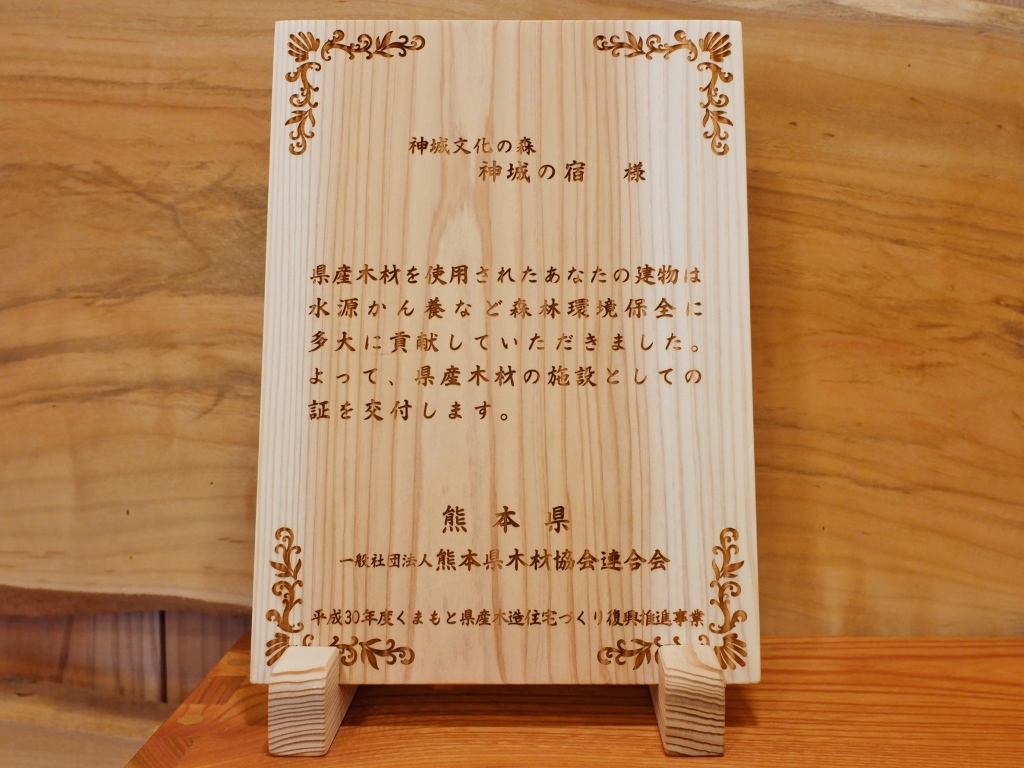 神城文化の森
神城の宿 様
県産木材を使用されたあなたの建物は
水源かん養など森林環境保全に
多大に貢献していただきました。
よって、県産木材の施設としての
証を交付します。
熊本県
一般社団法人熊本県木材協会連合会
平成30年度くまもと県産木造住宅づくり復興推進事業